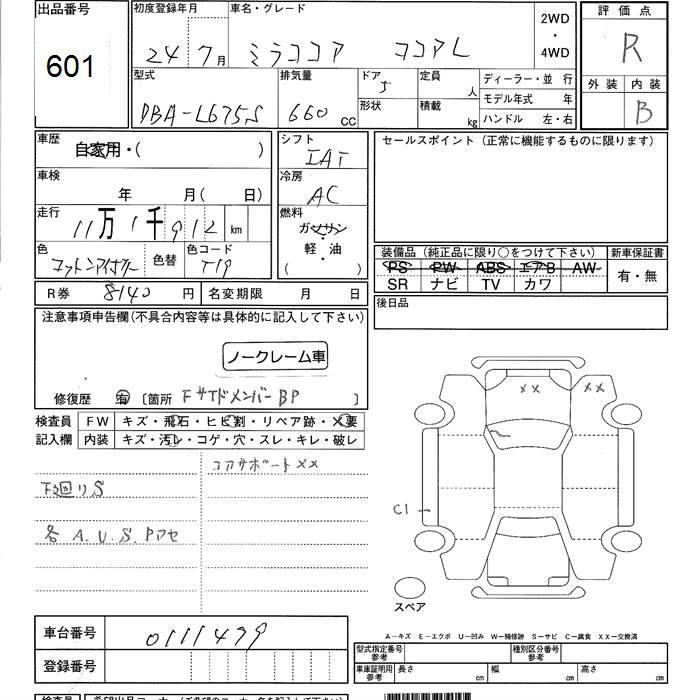 出品番号
601
初度登録年月
24年7月
車名・グレード
ミラココア ココアL
2WD
・
4WD
評価点
R
外装 内装
B
型式
DBA-L675S
排気量
660 cc
ドア
5
形状
定員
人
積載
kg
ディーラー・並行
モデル年式 年
ハンドル 左・右
車歴
自家用・( )
車検
年 月( 日)
走行
11万1千912 km
色
コットンアイボリー
色替
色コード
T19
シフト
IAT
冷房
AC
燃料
ガソリン
・
軽・油
( )
セールスポイント(正常に機能するものに限ります)
装備品(純正品に限り○をつけて下さい)
新車保証書
PS PW ABS エアB AW
SR ナビ TV カワ
有・無
後日品
R券 8140 円
名変期限 月 日
注意事項申告欄(不具合内容等は具体的に記入して下さい)
ノークレーム車
修復歴 有 〔箇所 FサイドメンバーBP 〕
検査員
記入欄
FW キズ・飛石・ヒビ割・リペア跡・X要
内装 キズ・汚レ・コゲ・穴・スレ・キレ・破レ
コアサポートXX
下廻りS
各A.U.S.Pアセ
XX XX
C1
スペア
車台番号 0111479
登録番号
A-キズ E-エクボ U-凹み W-補修跡 S-サビ C-腐食 XX-交換済
型式指定番号
参考
種別区分番号
参考
車庫証明用
参考
長さ cm 幅 cm 高さ cm